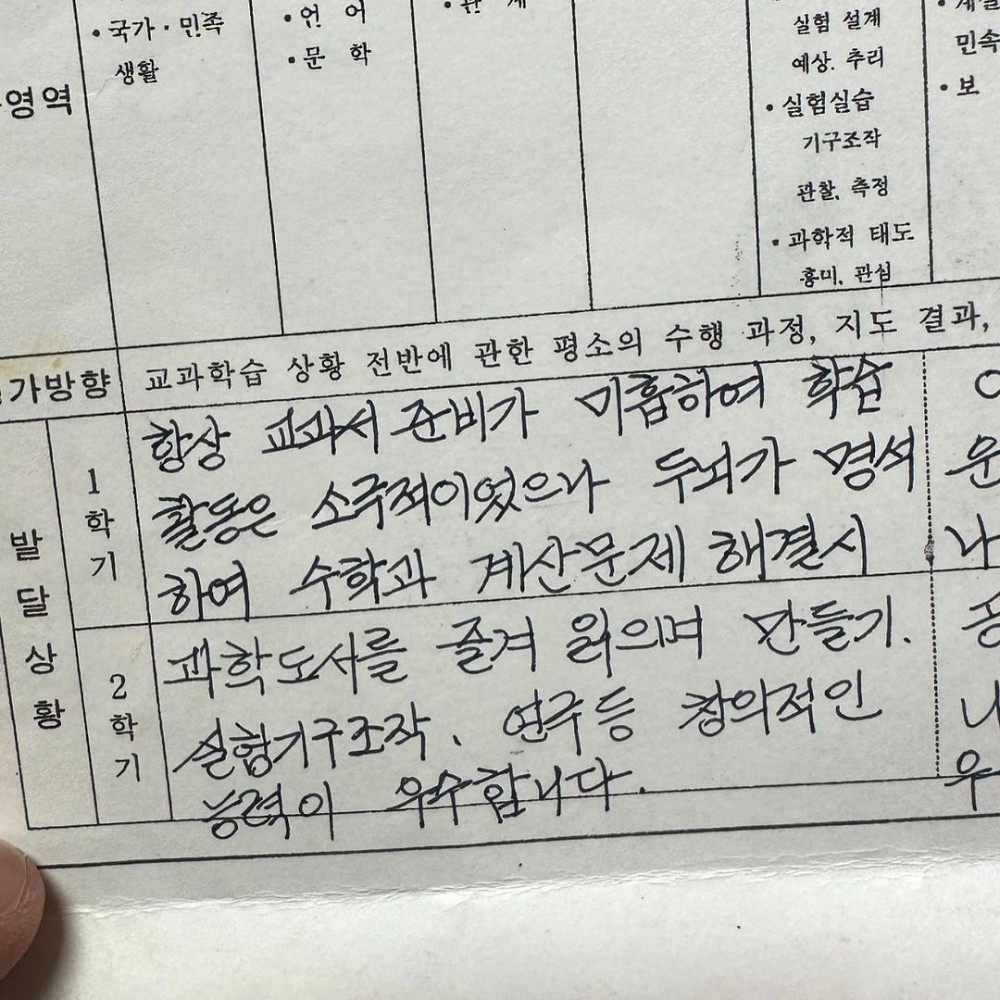 • 국가 · 민족
생활
• 언 어
• 문 학
실험 설계
예상. 추리
• 실험실습
기구조작
관찰, 측정
• 과학적 태도
흥미, 관심
민속
• 보
영역
가방향
교과학습 상황 전반에 관한 평소의 수행 과정, 지도 결과,
발달상황
1학기
항상 교과서 준비가 미흡하여 학습
활동은 소극적이었으나 두뇌가 명석
하여 수학과 계산문제 해결시
2학기
과학도서를 즐겨 읽으며 만들기.
실험기구조작. 연구등 창의적인
능력이 우수합니다.
운
나
공
나
우